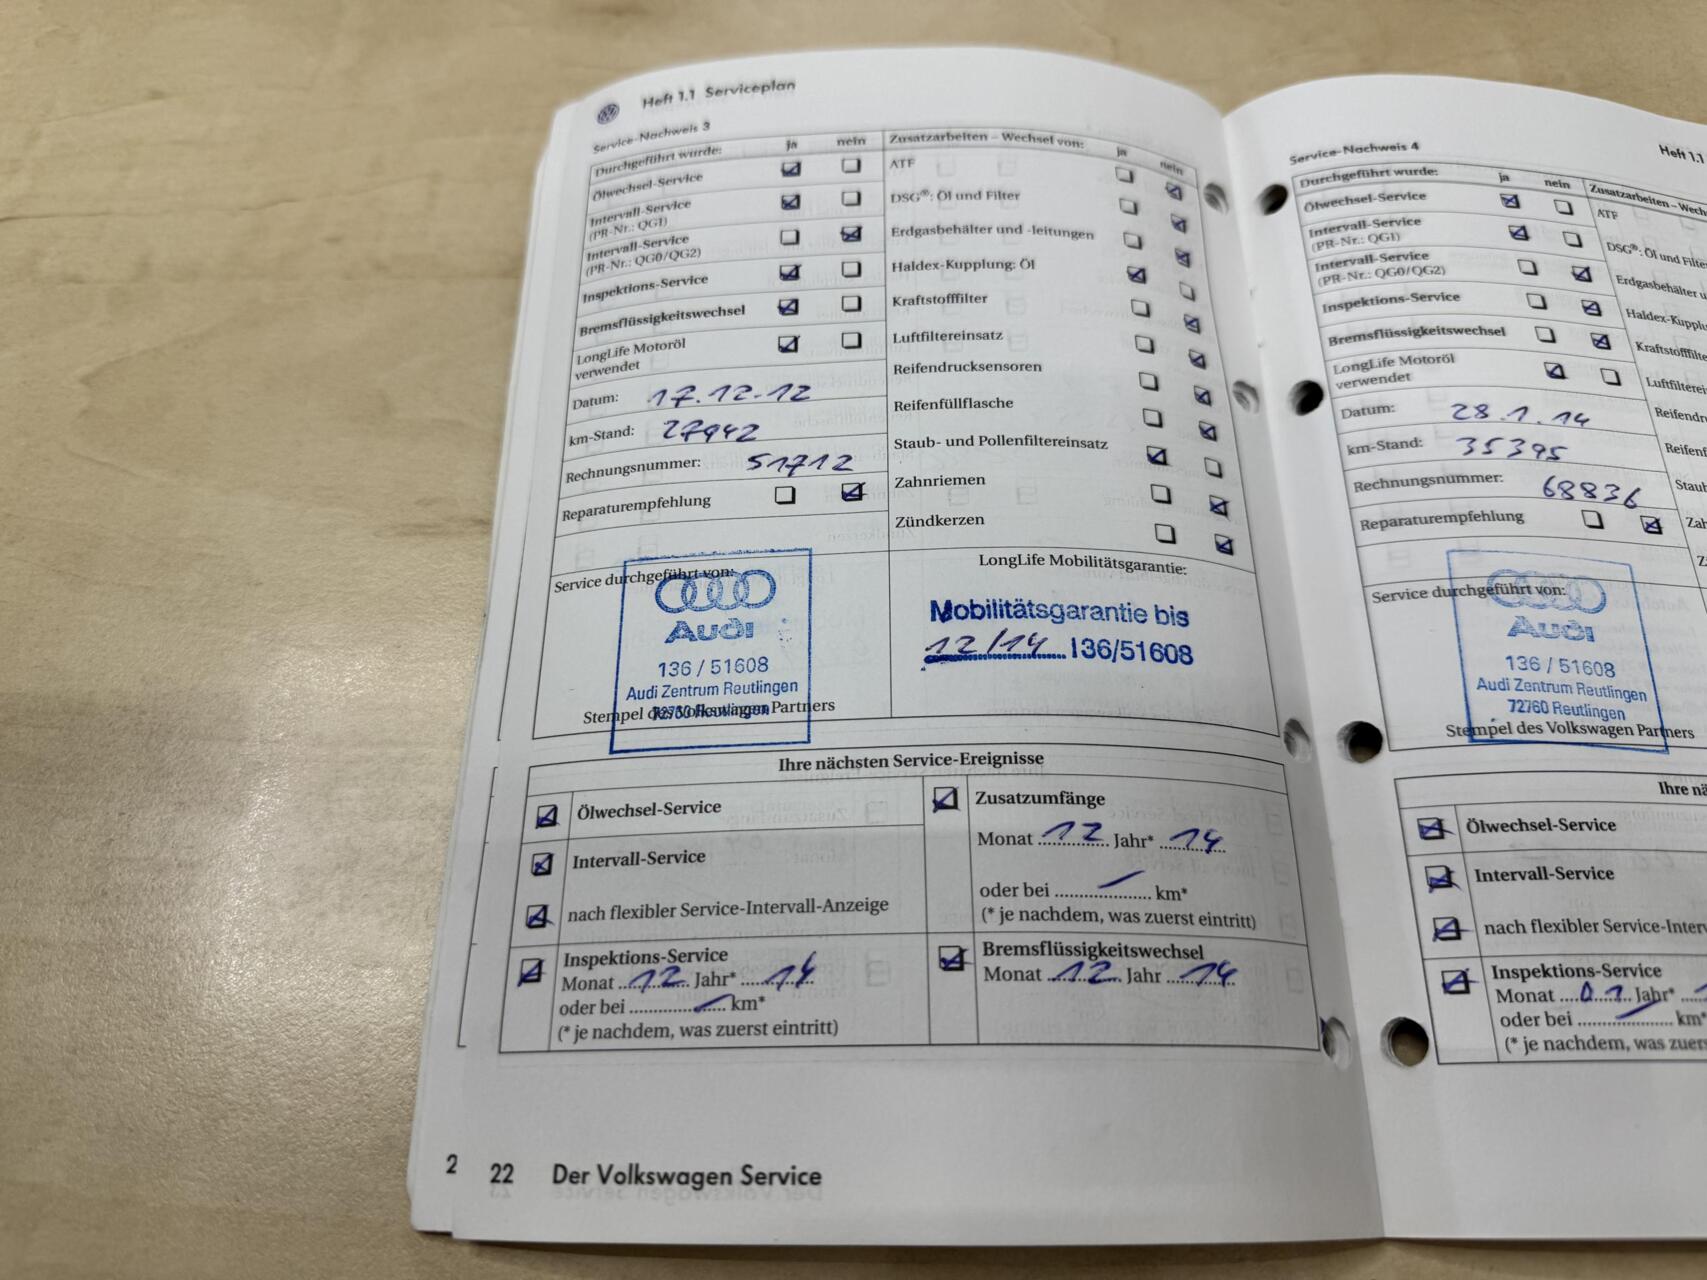 Heft 1.1 Serviceplan
Service-Nachweis 3
Durchgeführt wurde: ja nein
Ölwechsel-Service
Intervall-Service
(PR-Nr.: QG1)
Intervall-Service
(PR-Nr.: QG0/QG2)
Inspektions-Service
Bremsflüssigkeitswechsel
LongLife Motoröl
verwendet
Datum: 17.12.12
km-Stand: 27942
Rechnungsnummer: 51712
Reparaturempfehlung
Service durchgeführt von:
Audi
136 / 51608
Audi Zentrum Reutlingen
Stempel des Volkswagen Partners
Zusatzarbeiten – Wechsel von: ja nein
ATF
DSG®: Öl und Filter
Erdgasbehälter und -leitungen
Haldex-Kupplung: Öl
Kraftstofffilter
Luftfiltereinsatz
Reifendrucksensoren
Reifenfüllflasche
Staub- und Pollenfiltereinsatz
Zahnriemen
Zündkerzen
LongLife Mobilitätsgarantie:
Mobilitätsgarantie bis
12/14 136/51608
Ihre nächsten Service-Ereignisse
Ölwechsel-Service
Intervall-Service
nach flexibler Service-Intervall-Anzeige
Inspektions-Service
Monat 12 Jahr* 14
oder bei km*
(* je nachdem, was zuerst eintritt)
Zusatzumfänge
Monat 12 Jahr* 14
oder bei km*
(* je nachdem, was zuerst eintritt)
Bremsflüssigkeitswechsel
Monat 12 Jahr 14
2 22 Der Volkswagen Service
Heft 1.1
Service-Nachweis 4
Durchgeführt wurde: ja nein
Ölwechsel-Service
Intervall-Service
(PR-Nr.: QG1)
Intervall-Service
(PR-Nr.: QG0/QG2)
Inspektions-Service
Bremsflüssigkeitswechsel
LongLife Motoröl
verwendet
Datum: 28.1.14
km-Stand: 35395
Rechnungsnummer: 68836
Reparaturempfehlung
Service durchgeführt von:
Audi
136 / 51608
Audi Zentrum Reutlingen
72760 Reutlingen
Stempel des Volkswagen Partners
Zusatzarbeiten – Wech
ATF
DSG®: Öl und Filte
Erdgasbehälter u
Haldex-Kupplu
Kraftstofffilte
Luftfilterei
Reifendr
Reifenf
Staub
Zah
Z
Ihre nä
Ölwechsel-Service
Intervall-Service
nach flexibler Service-Interv
Inspektions-Service
Monat 01 Jahr*
oder bei km*
(* je nachdem, was zuers